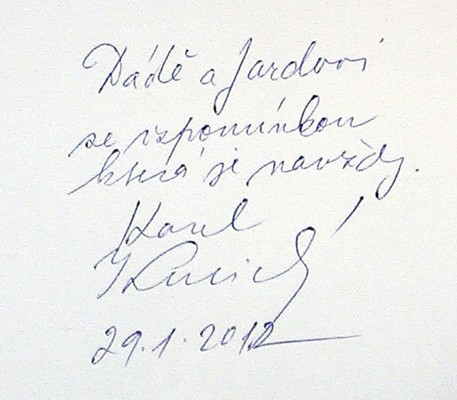 Dádě a Jardovi
se vzpomínkou
která je navždy.
Karel
29.1.2012